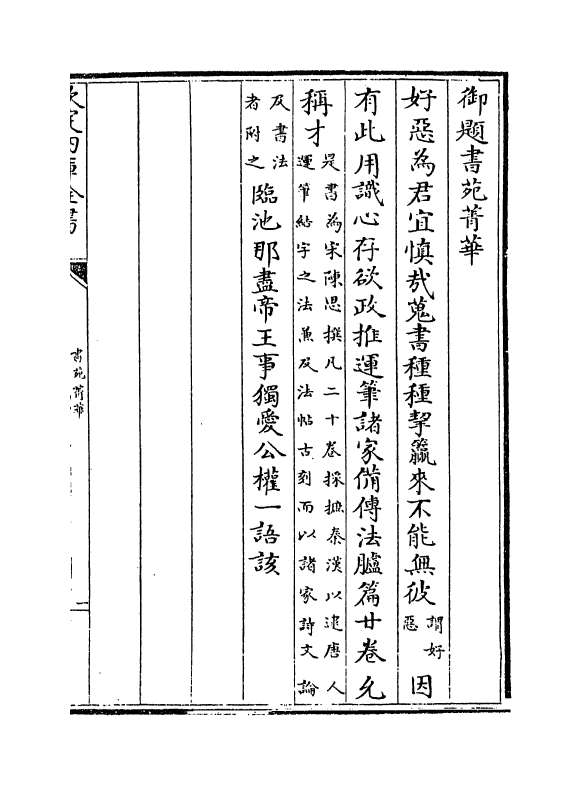 御題書苑菁華
好惡為君宜慎哉蒐書種種挈籯來不能無彼謂好惡因
有此用識心存欲政推運筆諸家備傳法臚篇廿卷允
稱才是書為宋陳思撰凡二十卷採摭秦漢以逮唐人運筆結字之法兼及法帖古刻而以諸家詩文論
及書法者附之臨池那盡帝王事獨愛公權一語該
欽定四庫全書
書苑菁華
一